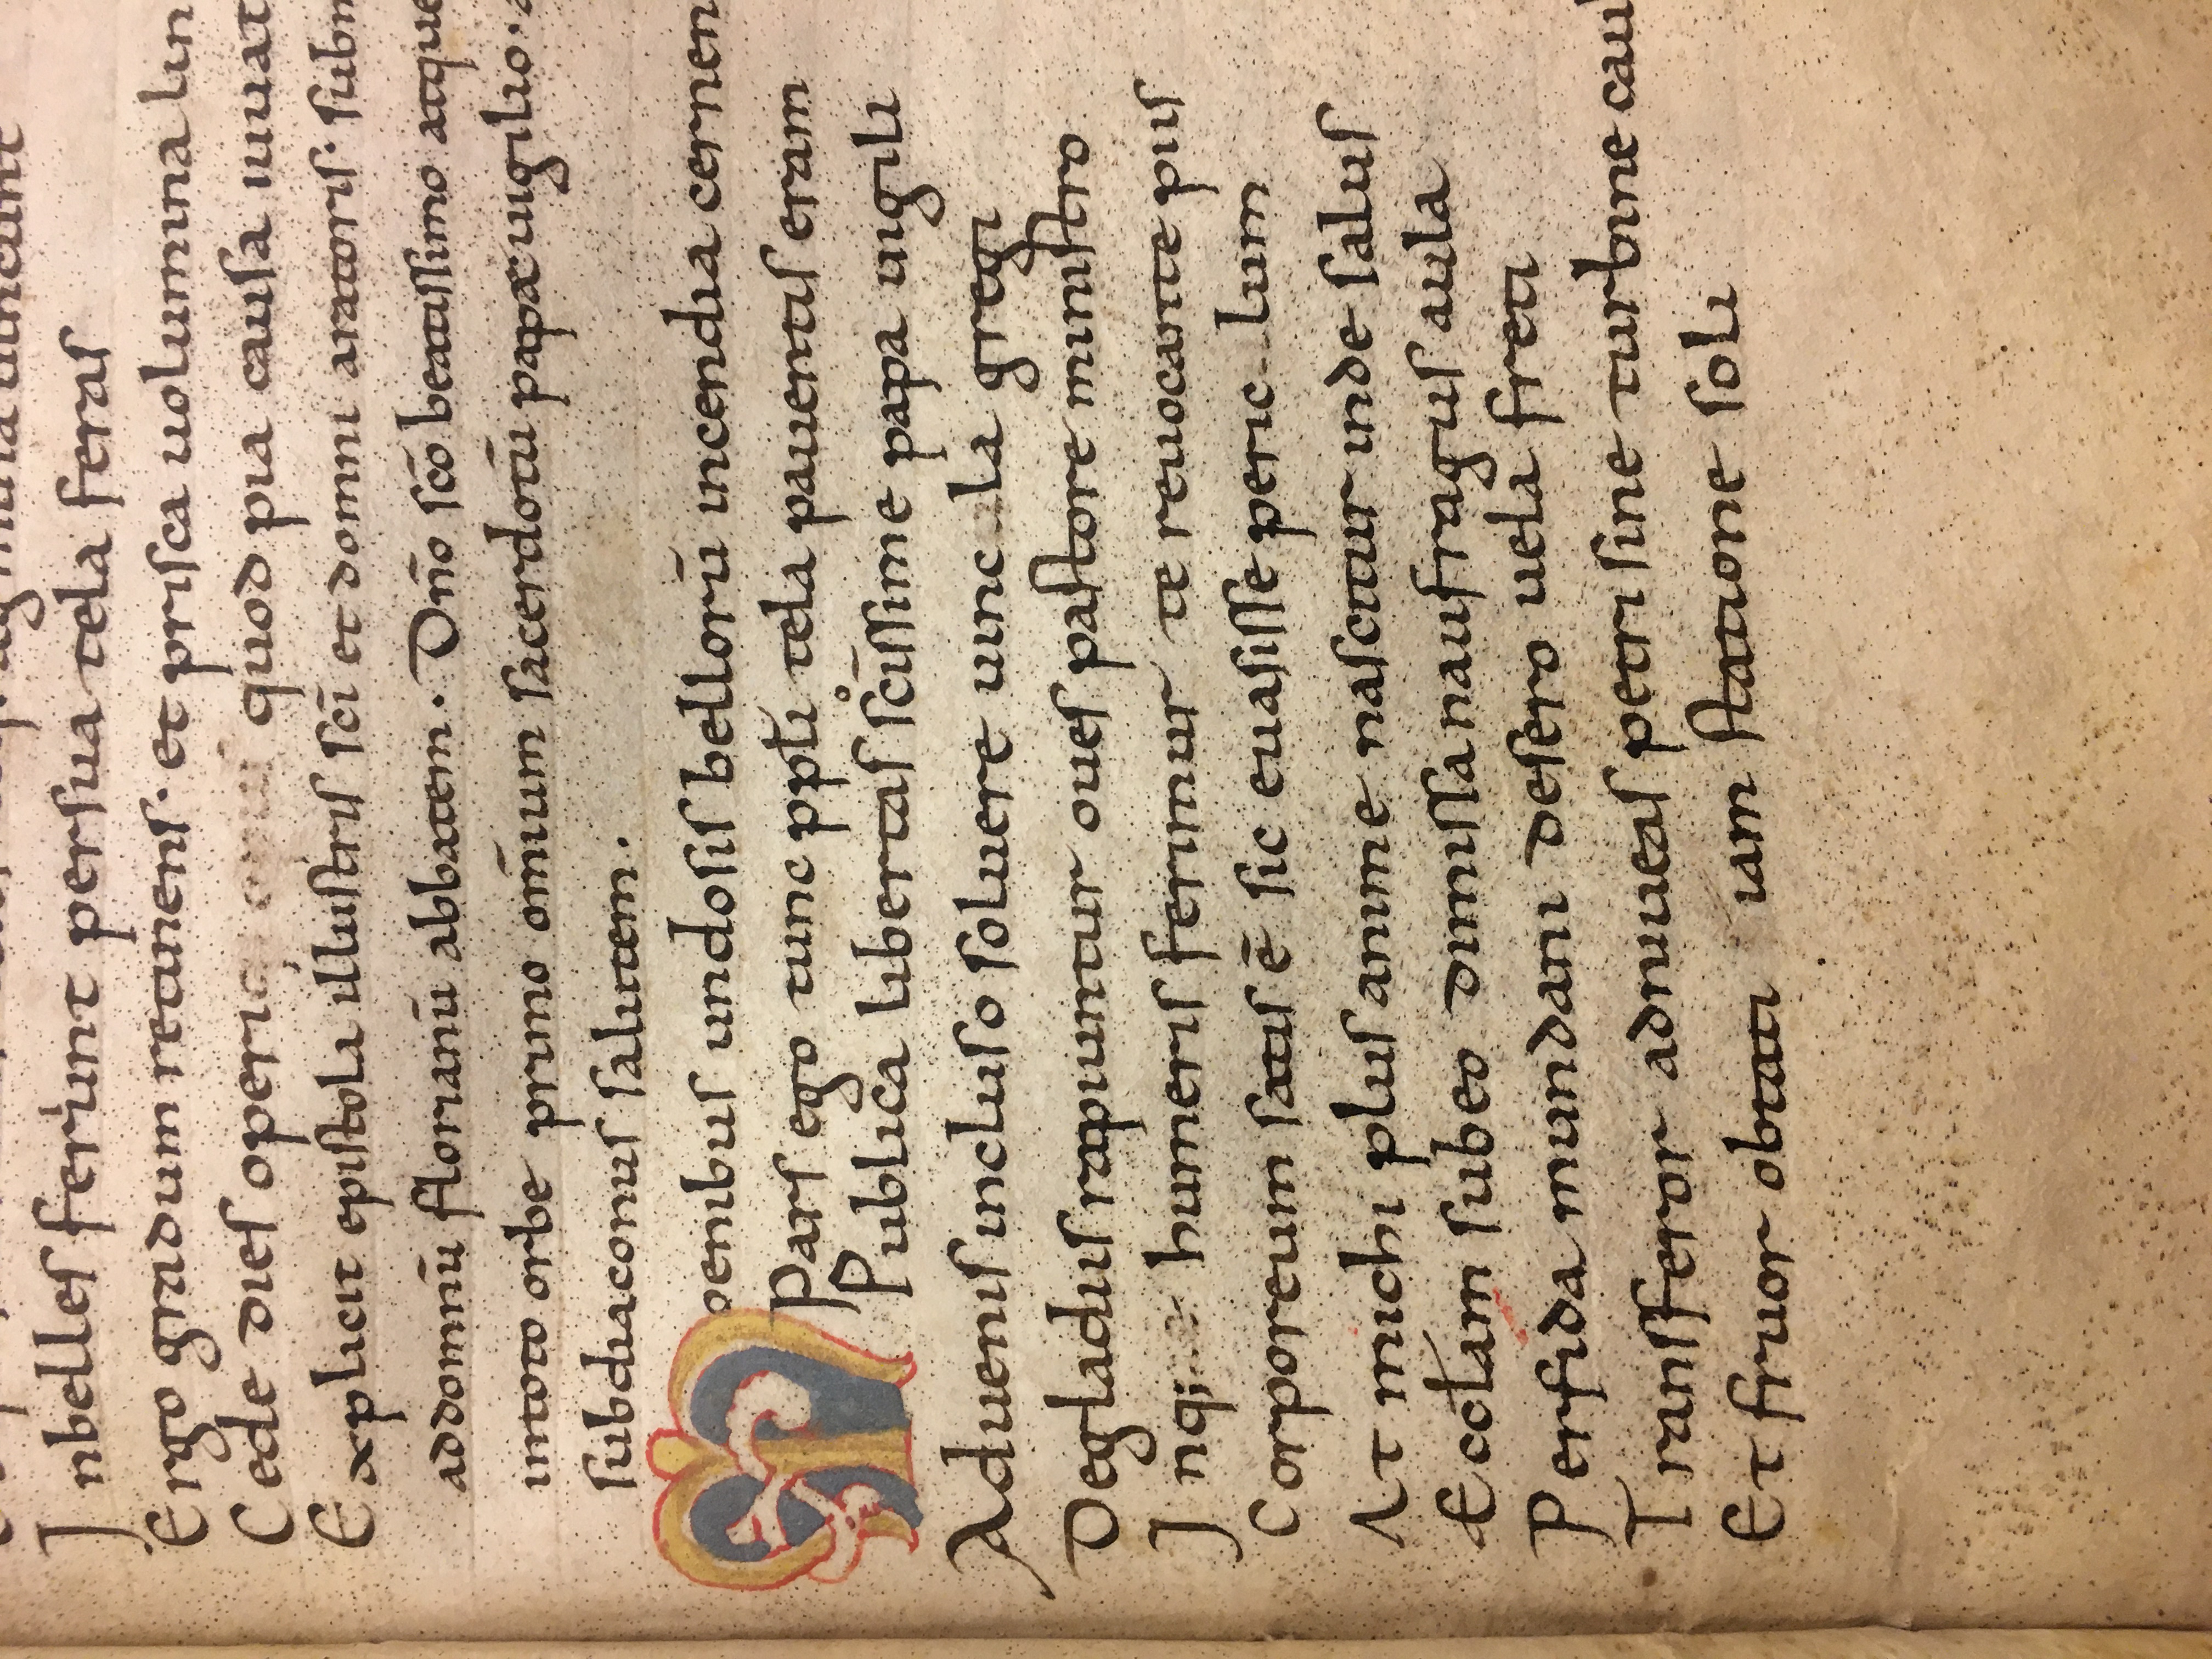 Jnbelles feriunt persua tela feras
Ergo gradum retinens. et prisca uolumina lin
Cede dies operi quod pia causa iuuat
Explicit epistola illustris sc̄i et domni aratoris. subm
addomnū florianū abbatem. Dn̄o sc̄o beatissimo atque
intoto orbe primo om̄ium sacerdotū papæuigilio.
subdiaconus salutem.
oenibus undosis bellorū incendia cernen
Pars ego tunc ppli tela pauentis eram
Publica libertas sc̄issime papa uigili
Aduenis incluso soluere uinc la gregi
Degladiis rapiuntur oues pastore ministro
Jnq; humeris ferimur te reuocante piis
Corporeum satis ē sic euasisse peric lum
At michi plus anime nascitur inde salus
Ecctam subeo dimissanaufragiis aula
Perfida mundani desero uela freti
Transferor adniueas petri sine turbine caul
Et fruor obtati iam statione soli